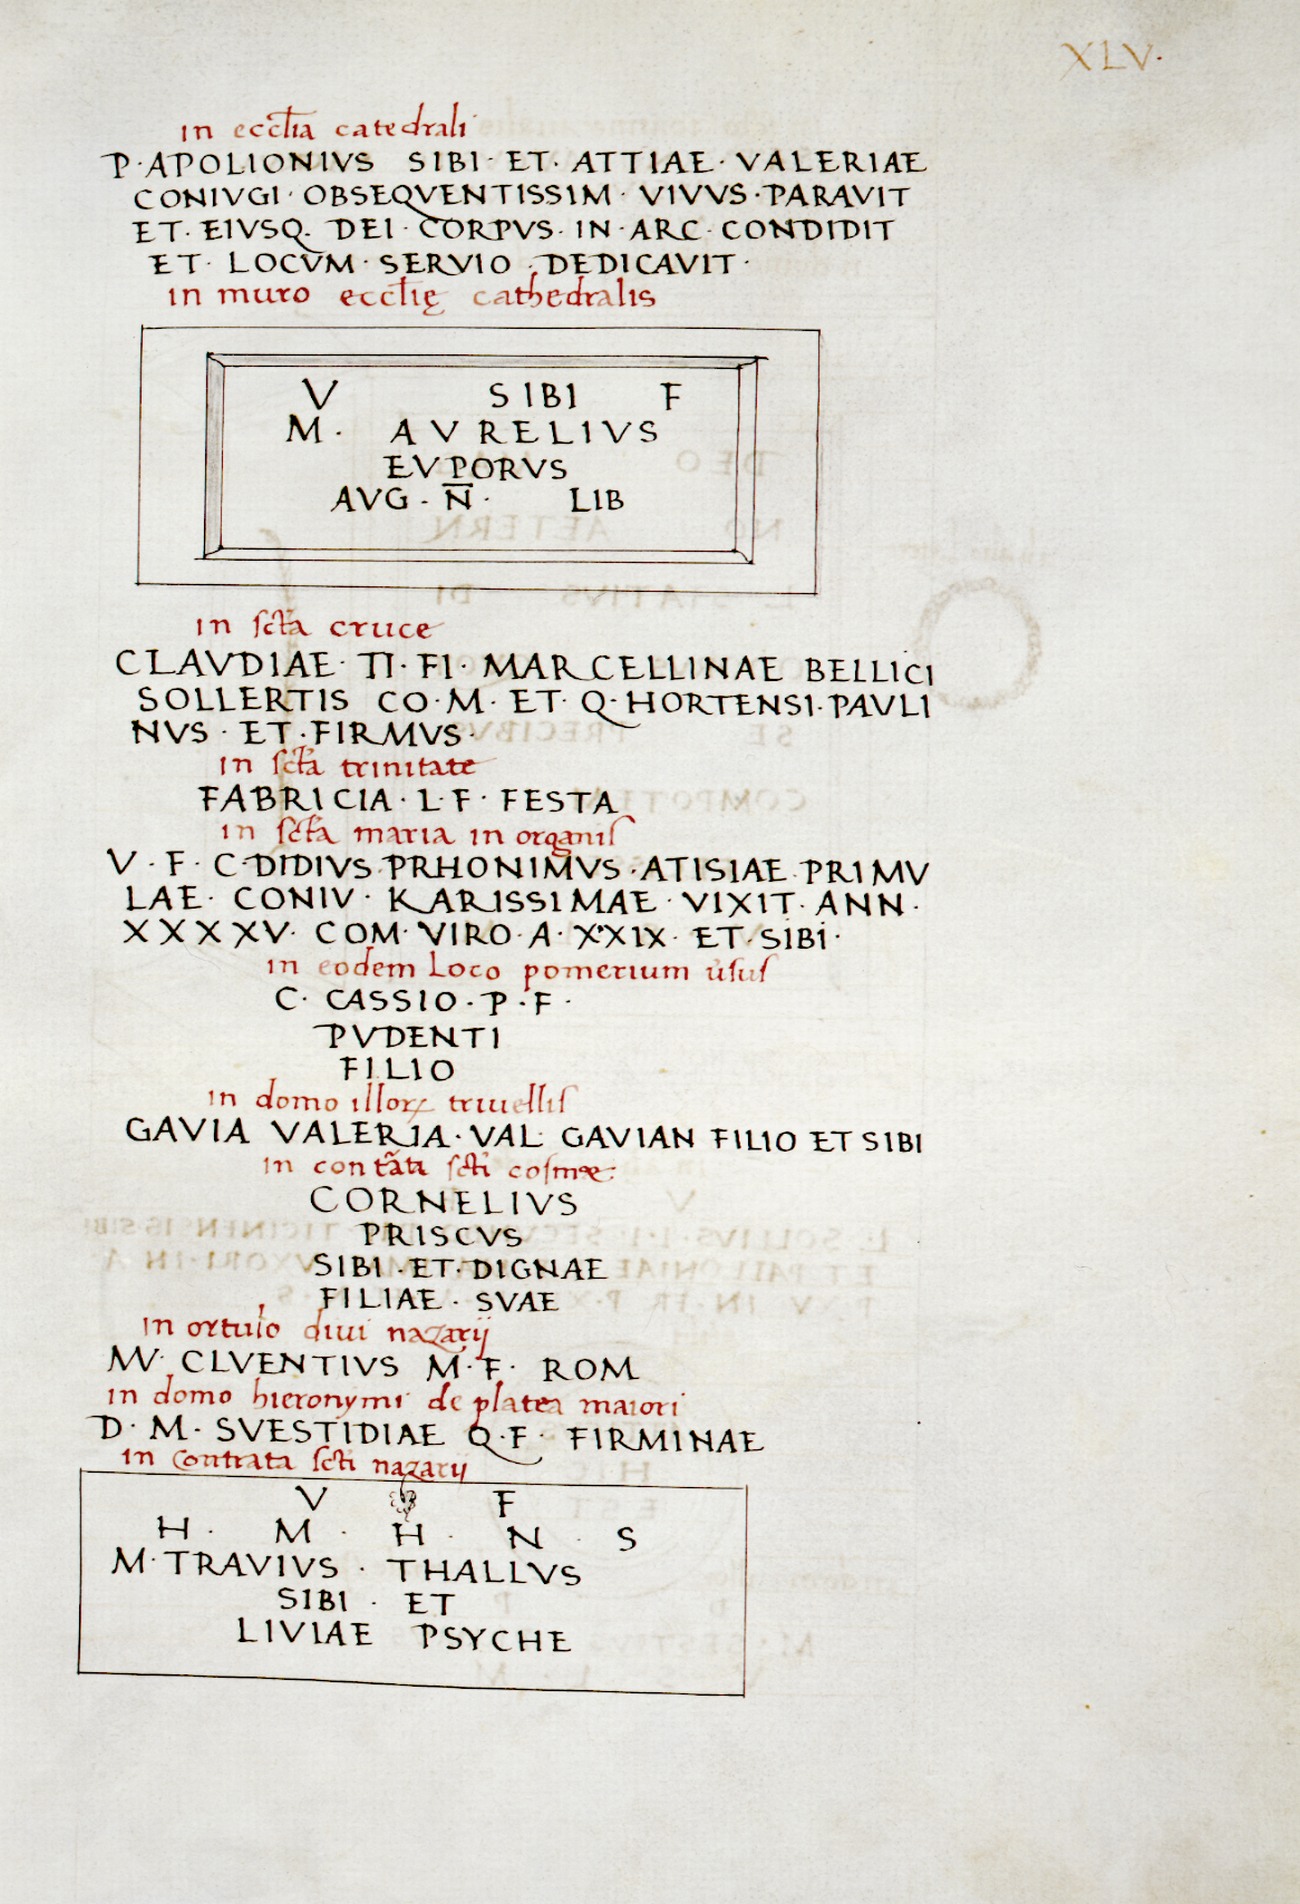 XLV·
in eccl̄ia catedrali
P·APOLIONIVS SIBI·ET·ATTIAE·VALERIAE
CONIVGI·OBSEQVENTISSIM·VIVVS·PARAVIT
ET·EIVSQ·DEI·CORPVS·IN·ARC·CONDIDIT
ET·LOCVM·SERVIO·DEDICAVIT·
in muro eccl̄ię cathedralis
V SIBI F
M· AVRELIVS
EVPORVS
AVG·N̄· LIB
in sct̄a cruce
CLAVDIAE·TI·FI·MARCELLINAE BELLICI
SOLLERTIS CO·M·ET·Q·HORTENSI·PAVLI
NVS·ET·FIRMVS·
in sct̄a trinitate
FABRICIA·L·F·FESTA
in sct̄a maria in organis
V·F·C·DIDIVS·PRHONIMVS·ATISIAE·PRIMV
LAE·CONIV·KARISSIMAE·VIXIT·ANN·
XXXXV·COM·VIRO·A·XXIX·ET·SIBI·
in eodem loco pomerium
C·CASSIO·P·F·
PVDENTI
FILIO
in domo illoꝝ trivellis
GAVIA VALERIA·VAL GAVIAN FILIO ET SIBI
in contrāta sct̄i cosmæ:
CORNELIVS
PRISCVS
SIBI·ET·DIGNAE
FILIAE·SVAE
in ortulo diui nazarij
MV·CLVENTIVS M·F·ROM
in domo hieronymi de platea maiori
D·M·SVESTIDIAE Q·F·FIRMINAE
in contrata sct̄i nazarij
V F
H· M· H· N· S
M·TRAVIVS·THALLVS
SIBI·ET
LIVIAE PSYCHE